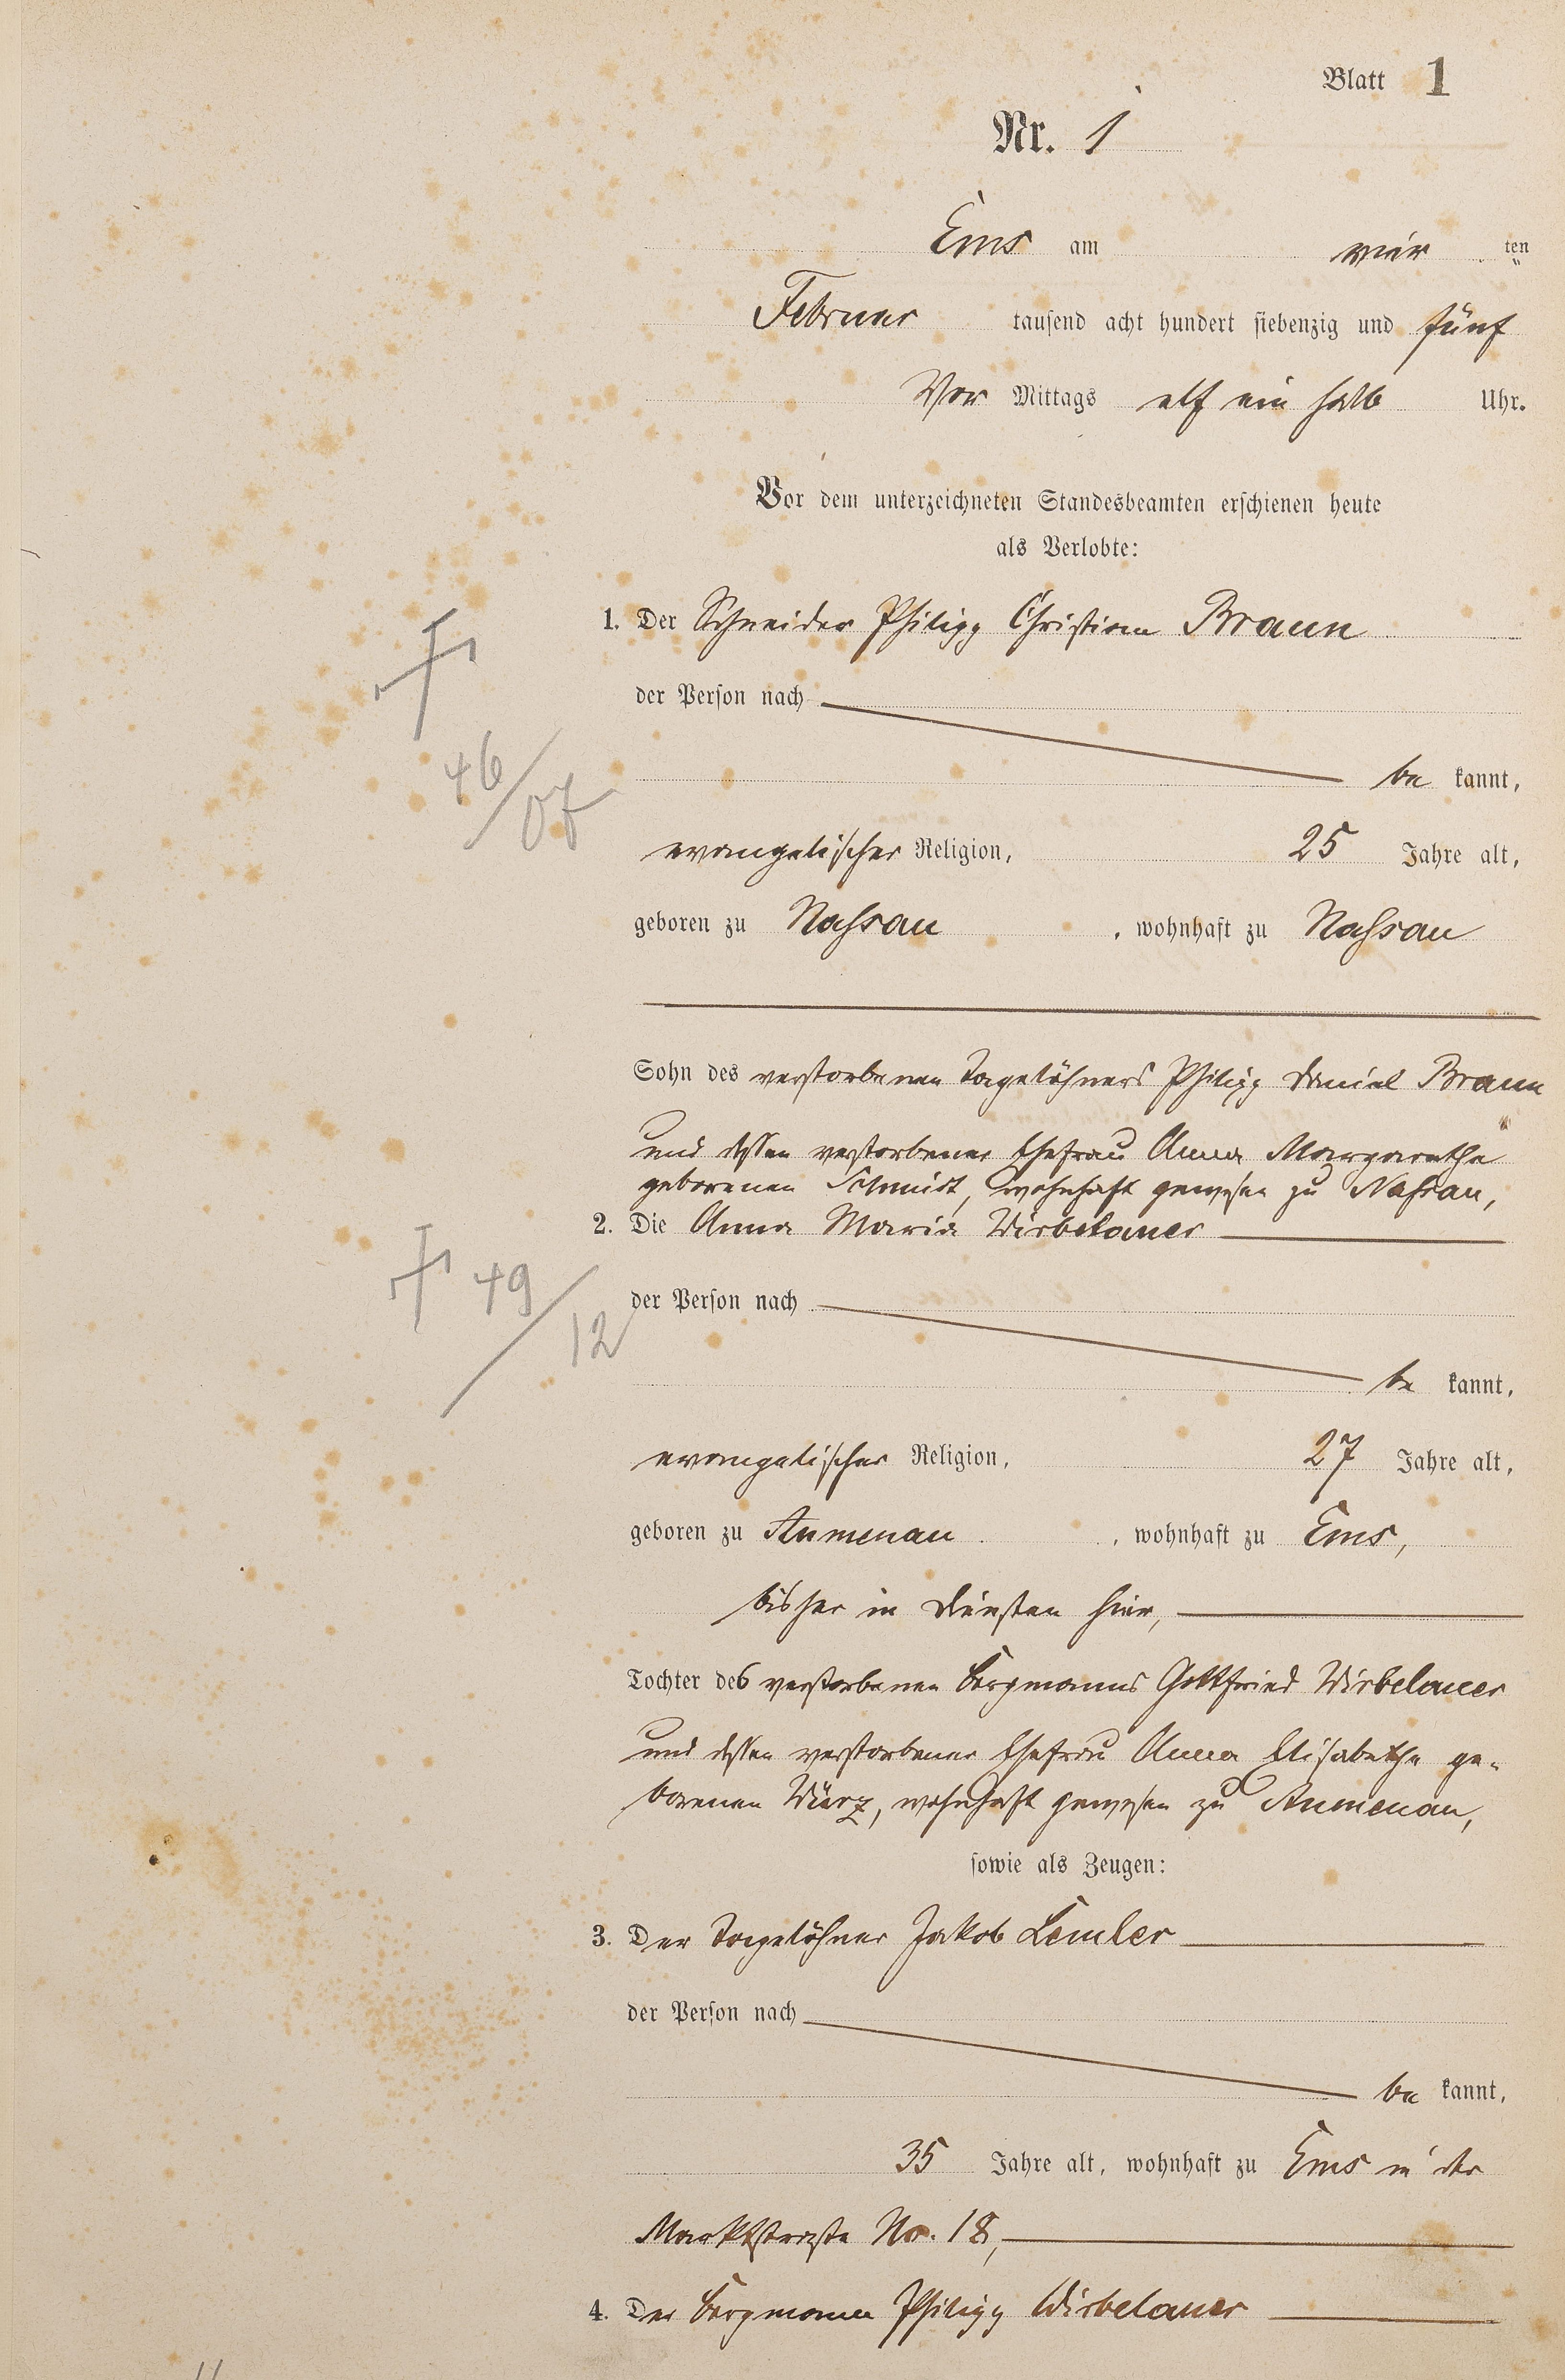 Blatt 1
Nr. 1
Ems am vier ten
Februar tausend acht hundert siebenzig und fünf
Vor Mittags elf ein halb Uhr.
Vor dem unterzeichneten Standesbeamten erschienen heute
als Verlobte:
1. Der Schneider Philipp Christian Braun
der Person nach
be kannt,
evangelischer Religion, 25 Jahre alt,
geboren zu Nassau, wohnhaft zu Nassau
Sohn des verstorbenen Tagelöhners Philipp Daniel Braun
und dessen verstorbener Ehefrau Anna Margarethe
geborenen Schmidt, wohnhaft gewesen zu Nassau,
2. Die Anna Maria Wirbelauer
der Person nach
be kannt,
evangelischer Religion, 27 Jahre alt,
geboren zu Aumenau, wohnhaft zu Ems,
bisher in Diensten hier,
Tochter des verstorbenen Bergmanns Gottfried Wirbelauer
und dessen verstorbener Ehefrau Anna Elisabethe ge-
borenen Würz, wohnhaft gewesen zu Aumenau,
sowie als Zeugen:
3. Der Tagelöhner Jakob Lemler
der Person nach
be kannt,
35 Jahre alt, wohnhaft zu Ems in der
Marktstraße No. 18,
4. Der Bergmann Philipp Wirbelauer
46/07
49/12